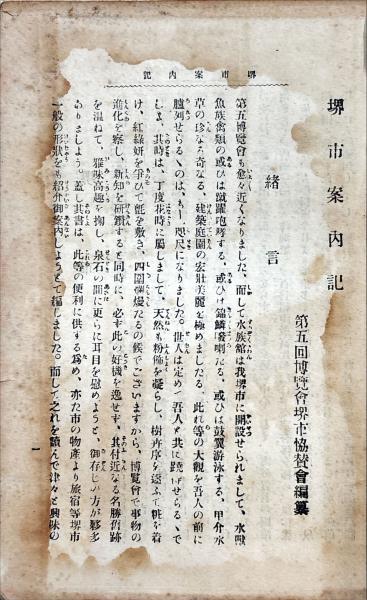 堺市案内記
堺市案内記
第五回博覽會堺市協贊會編纂
緒言
第五博覽會も愈々近くなりました、而して水族舘は我堺市に開設せられまして、水獸
魚族禽類の或ひは蹴躍咆哮する、或ひは錦鱗發剌たる、或ひは鼓翼游泳する、甲介水
草の珍なる奇なる、建築庭園の宏壯美麗を極めましたる、此れ等の大觀を吾人の前に
臚列せらるゝのは、もう咫尺になりました。世人は定めて吾人と共に踴せらるゝで
しよ、其時は、丁度花時に屬しまして、天然も粉飾を凝らし、樹卉序を逐ふて粧を着
け、紅綠妍を爭ひて氈を敷き、四圍爛熳たるの候でございますから、博覽會で事物の
進化を察し、新知を研鑽すると同時に、必ず此の好機を逸せず、其付近なる名勝舊跡
を温ねて、雅味高趣を掬し、泉石の間に更らに耳目を慰めようと、御存じの方が夥多
ありましよう。蓋し其書は、此等の便利に供する爲め、亦た市の物產より旅宿等堺市
一般の形狀をも紹介御案內しようとて編しました。而して之れを讀んで津々と興味の
一